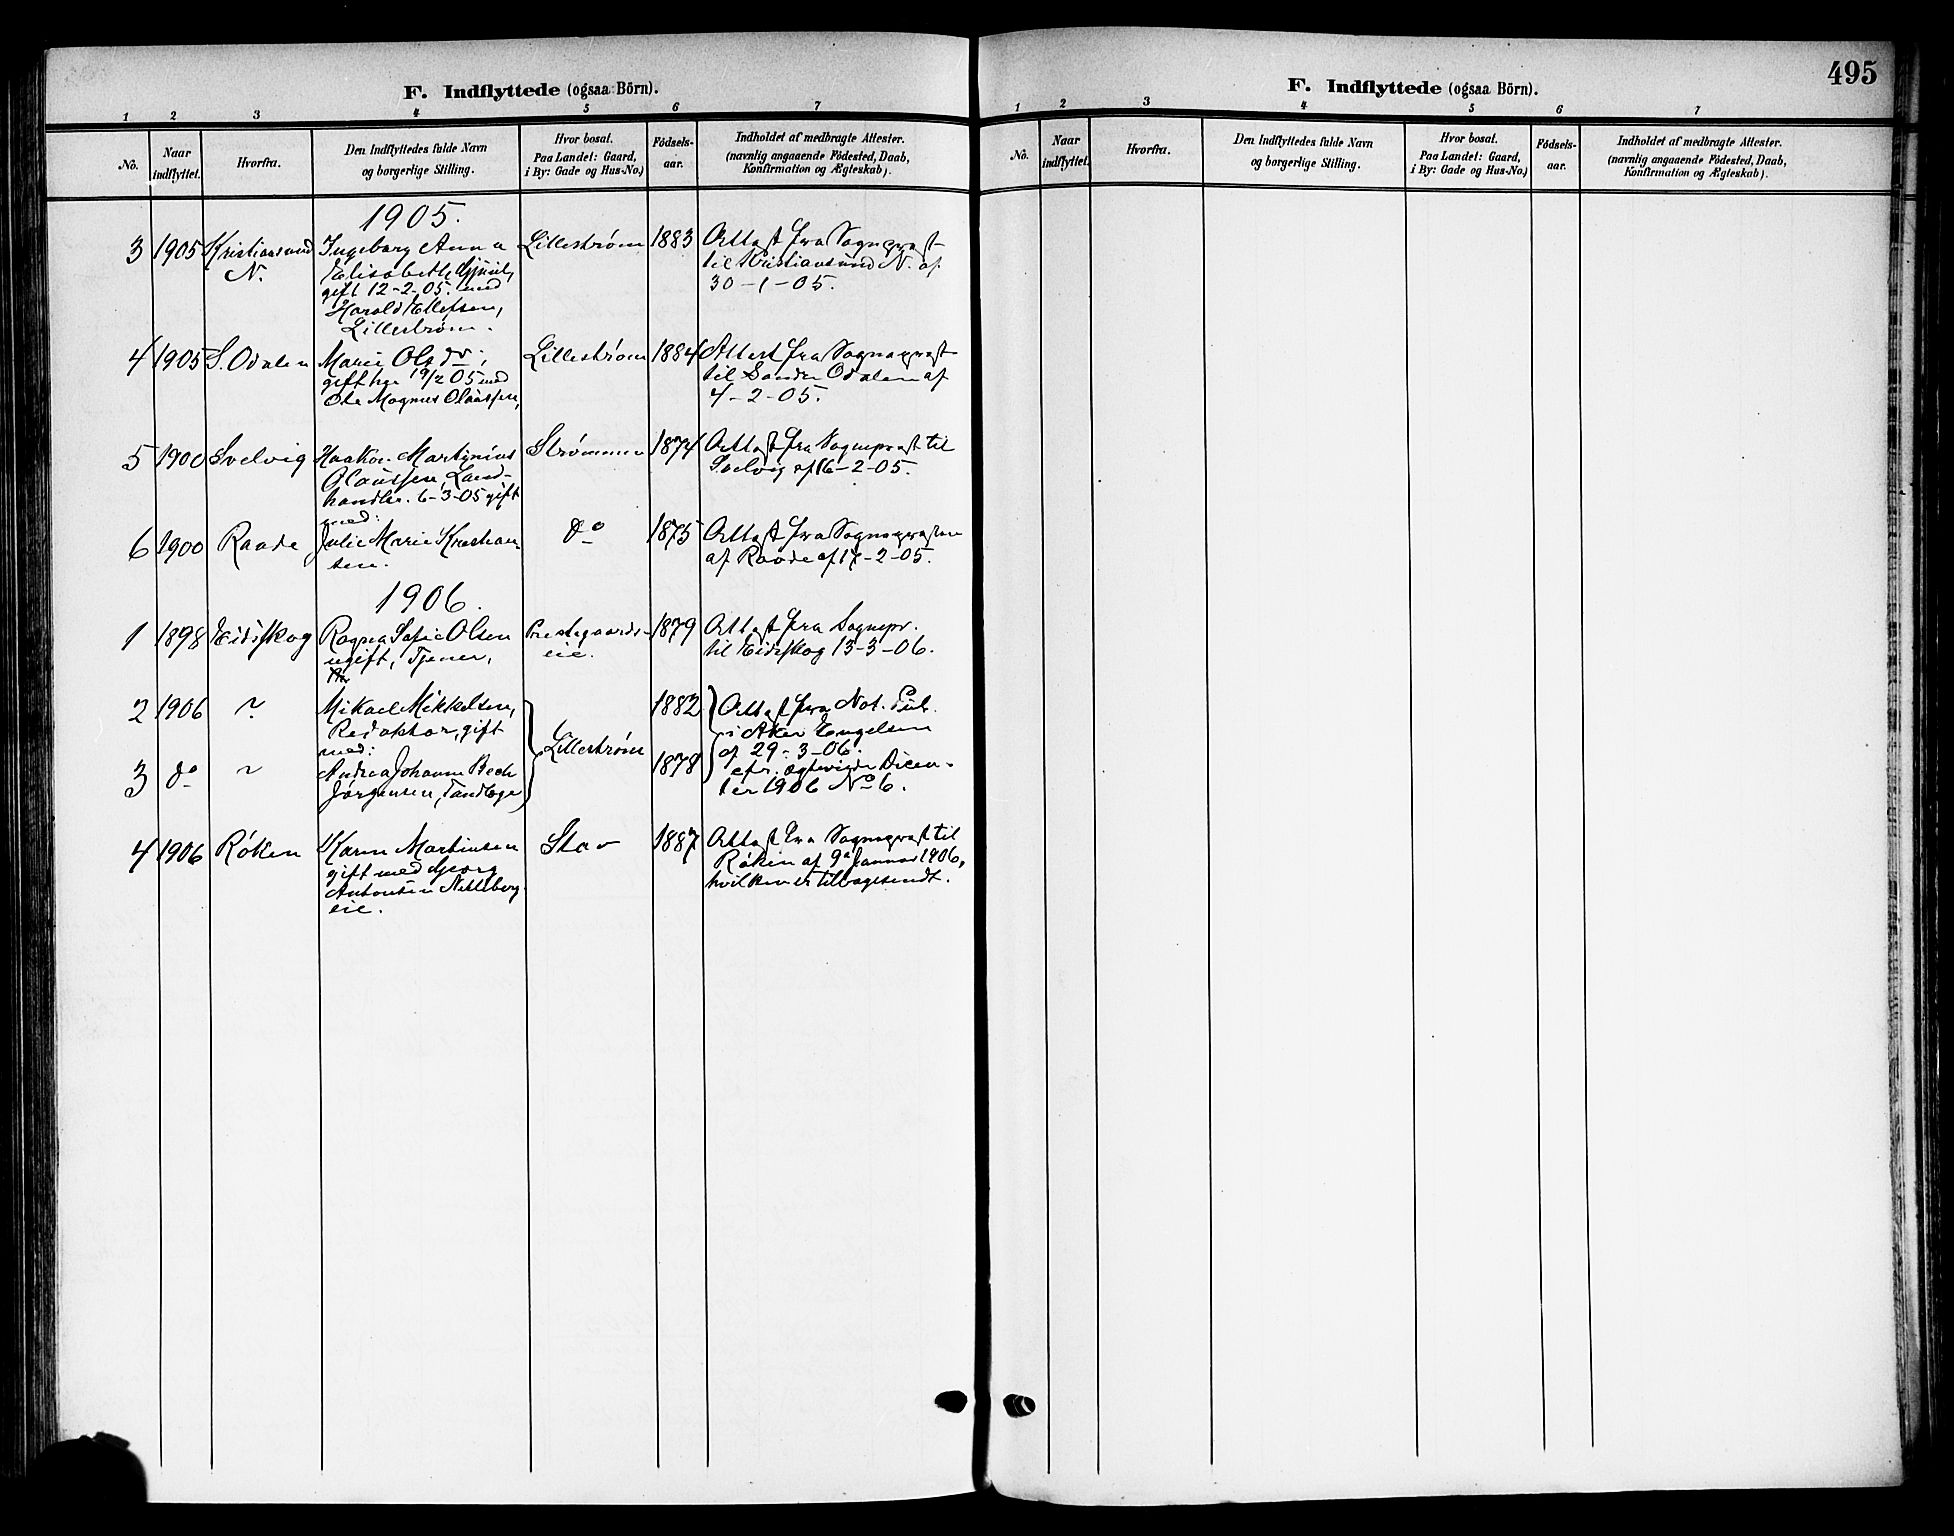 495
F. Indflyttede (ogsaa Börn).
1 2 3 4 5 6 7
No. Naar indflyttet. Hvorfra. Den Indflyttedes fulde Navn og borgerlige Stilling. Hvor bosat. Paa Landet: Gaard, i By: Gade og Hus-No.) Födsels-aar. Indholdet af medbragte Attester. (navnlig angaaende Födested, Daab, Konfirmation og Ægteskab).
1905.
3 1905 Kristiansund Ingeborg Anna Lillestrøm 1883 Attest fra Sognepræst
N. Elisabeth til Kristiansund N. af
gift 12-2-05. med 30-1-05.
Harald Ellefsen,
Lillestrøm.
4 1905 S. Odalen Marie Olsdr. Lillestrøm 1884 Attest fra Sognepræst
gift her 19/2 05 med til Søndre Odalen af
Ole Magnus Olaussen, 4-2-05.
5 1900 Svelvig Haakon Martinius Strømmen 1874 Attest fra Sognepræst til
Olaussen, Land- Svelvig af 16-2-05.
handler. 6-3-05 gift
med:
6 1900 Raade Julie Marie Kristian- do 1875 Attest fra Sognepræsten
sen. af Raade af 17-2-05.
1906.
1 1898 Eidskog Ragna Sofie Olsen Prestegaards- 1879 Attest fra Sognepr.
ugift, Tjener, eie. til Eidskog 13-3-06.
2 1906 ? Mikael Mikkelsen, Lillestrøm 1882 Attest fra Not. Pub.
Redaktør, gift i Aker Engelsen
med: af 29-3-06.
3 do ~ Andrea Johanne Bech 1878 cfr. ægteviede Dicen-
Jørgensen, Tandlæge ter 1906 No 6.
4 1906 Røken Karen Martinsen Stav 1887 Attest fra Sognepræst til
gift med Georg Røken af 9de Januar 1906,
Antonsen Nitteberg- hvilken er tilbagesendt.
eie.
F. Indflyttede (ogsaa Börn).
1 2 3 4 5 6 7
No. Naar indflyttet. Hvorfra. Den Indflyttedes fulde Navn og borgerlige Stilling. Hvor bosat. Paa Landet: Gaard, i By: Gade og Hus-No.) Födsels-aar. Indholdet af medbragte Attester. (navnlig angaaende Födested, Daab, Konfirmation og Ægteskab).